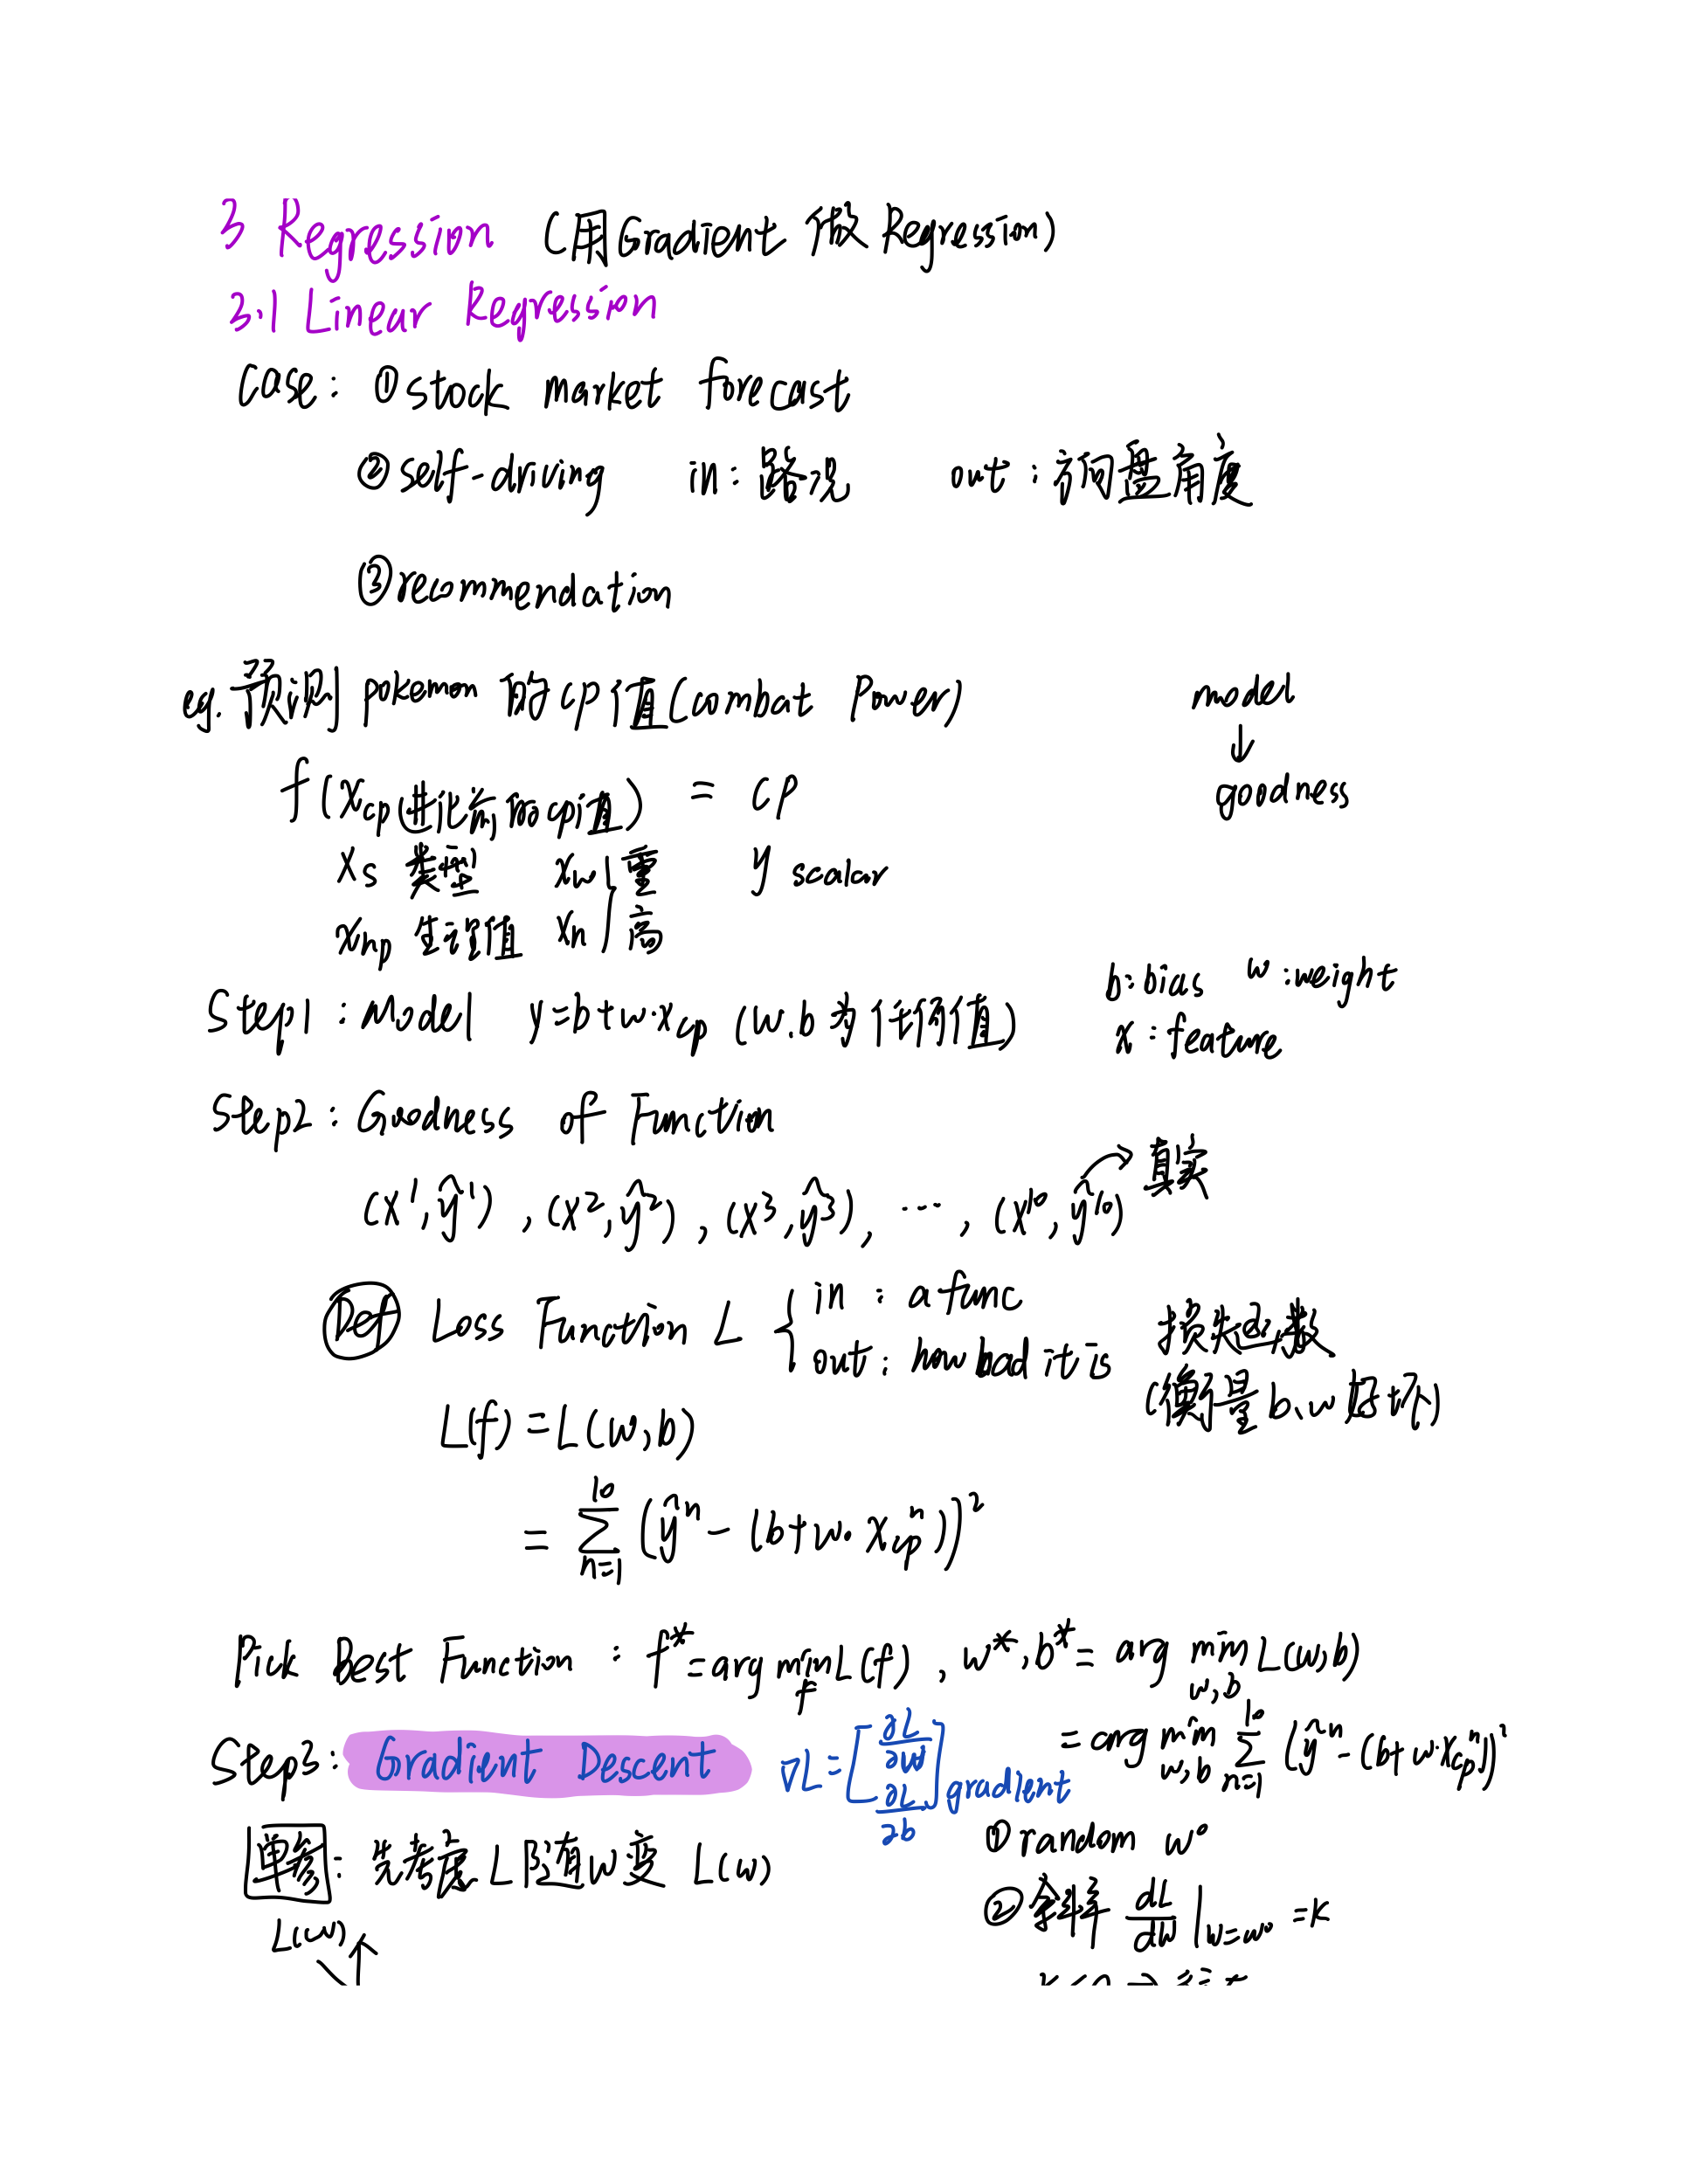 3 Regression (用Gradient 做 Regression)
3.1 Linear Regression
case: ①stock market forecast
②self-driving in: 路况 out: 方向盘角度
③recommendation
eg. 预测 pokemon 的 cp 值 (combat Power)
model
↓
goodness
f(x_cp (进化前的cp值) = cp
x_s 类型 x_w 重 y scalar
x_hp 生理值 x_h 高
b: bias w: weight
x: feature
Step1: Model y=b+w·x_cp (w.b 为任何值)
Step2: Goodness of Function
(x¹, ŷ¹), (x², ŷ²), (x³, ŷ³), …, (x¹⁰, ŷ¹⁰) → 真实
Def Loss Function L { in: a func
out: how bad it is
损失函数
(衡量 b.w 好坏)
L(f) = L(w,b)
= ∑_{n=1}^{10} (ŷⁿ - (b+w·x_cpⁿ))²
Pick Best Function: f* = arg min_f L(f), w*, b* = arg min_{w,b} L(w,b)
= arg min_{w,b} ∑_{n=1}^{10} (ŷⁿ - (b+w·x_cpⁿ))²
Step3: Gradient Descent ∇L = [∂L/∂w ∂L/∂b] gradient
单参: 先考虑L随w变 L(w)
① random w⁰
② 斜率 dL/dw |_{w=w⁰} = k
L(w)